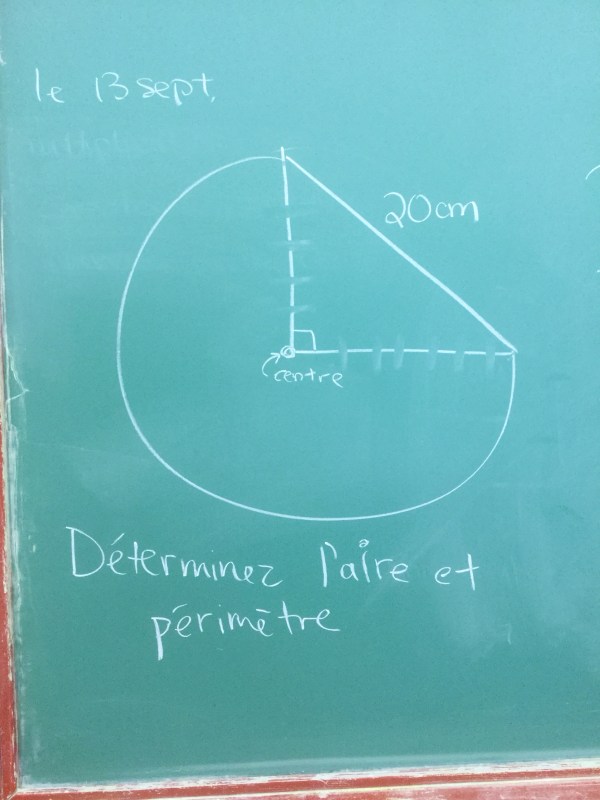 le 13 sept,
20cm
centre
Déterminez l'aire et
périmètre